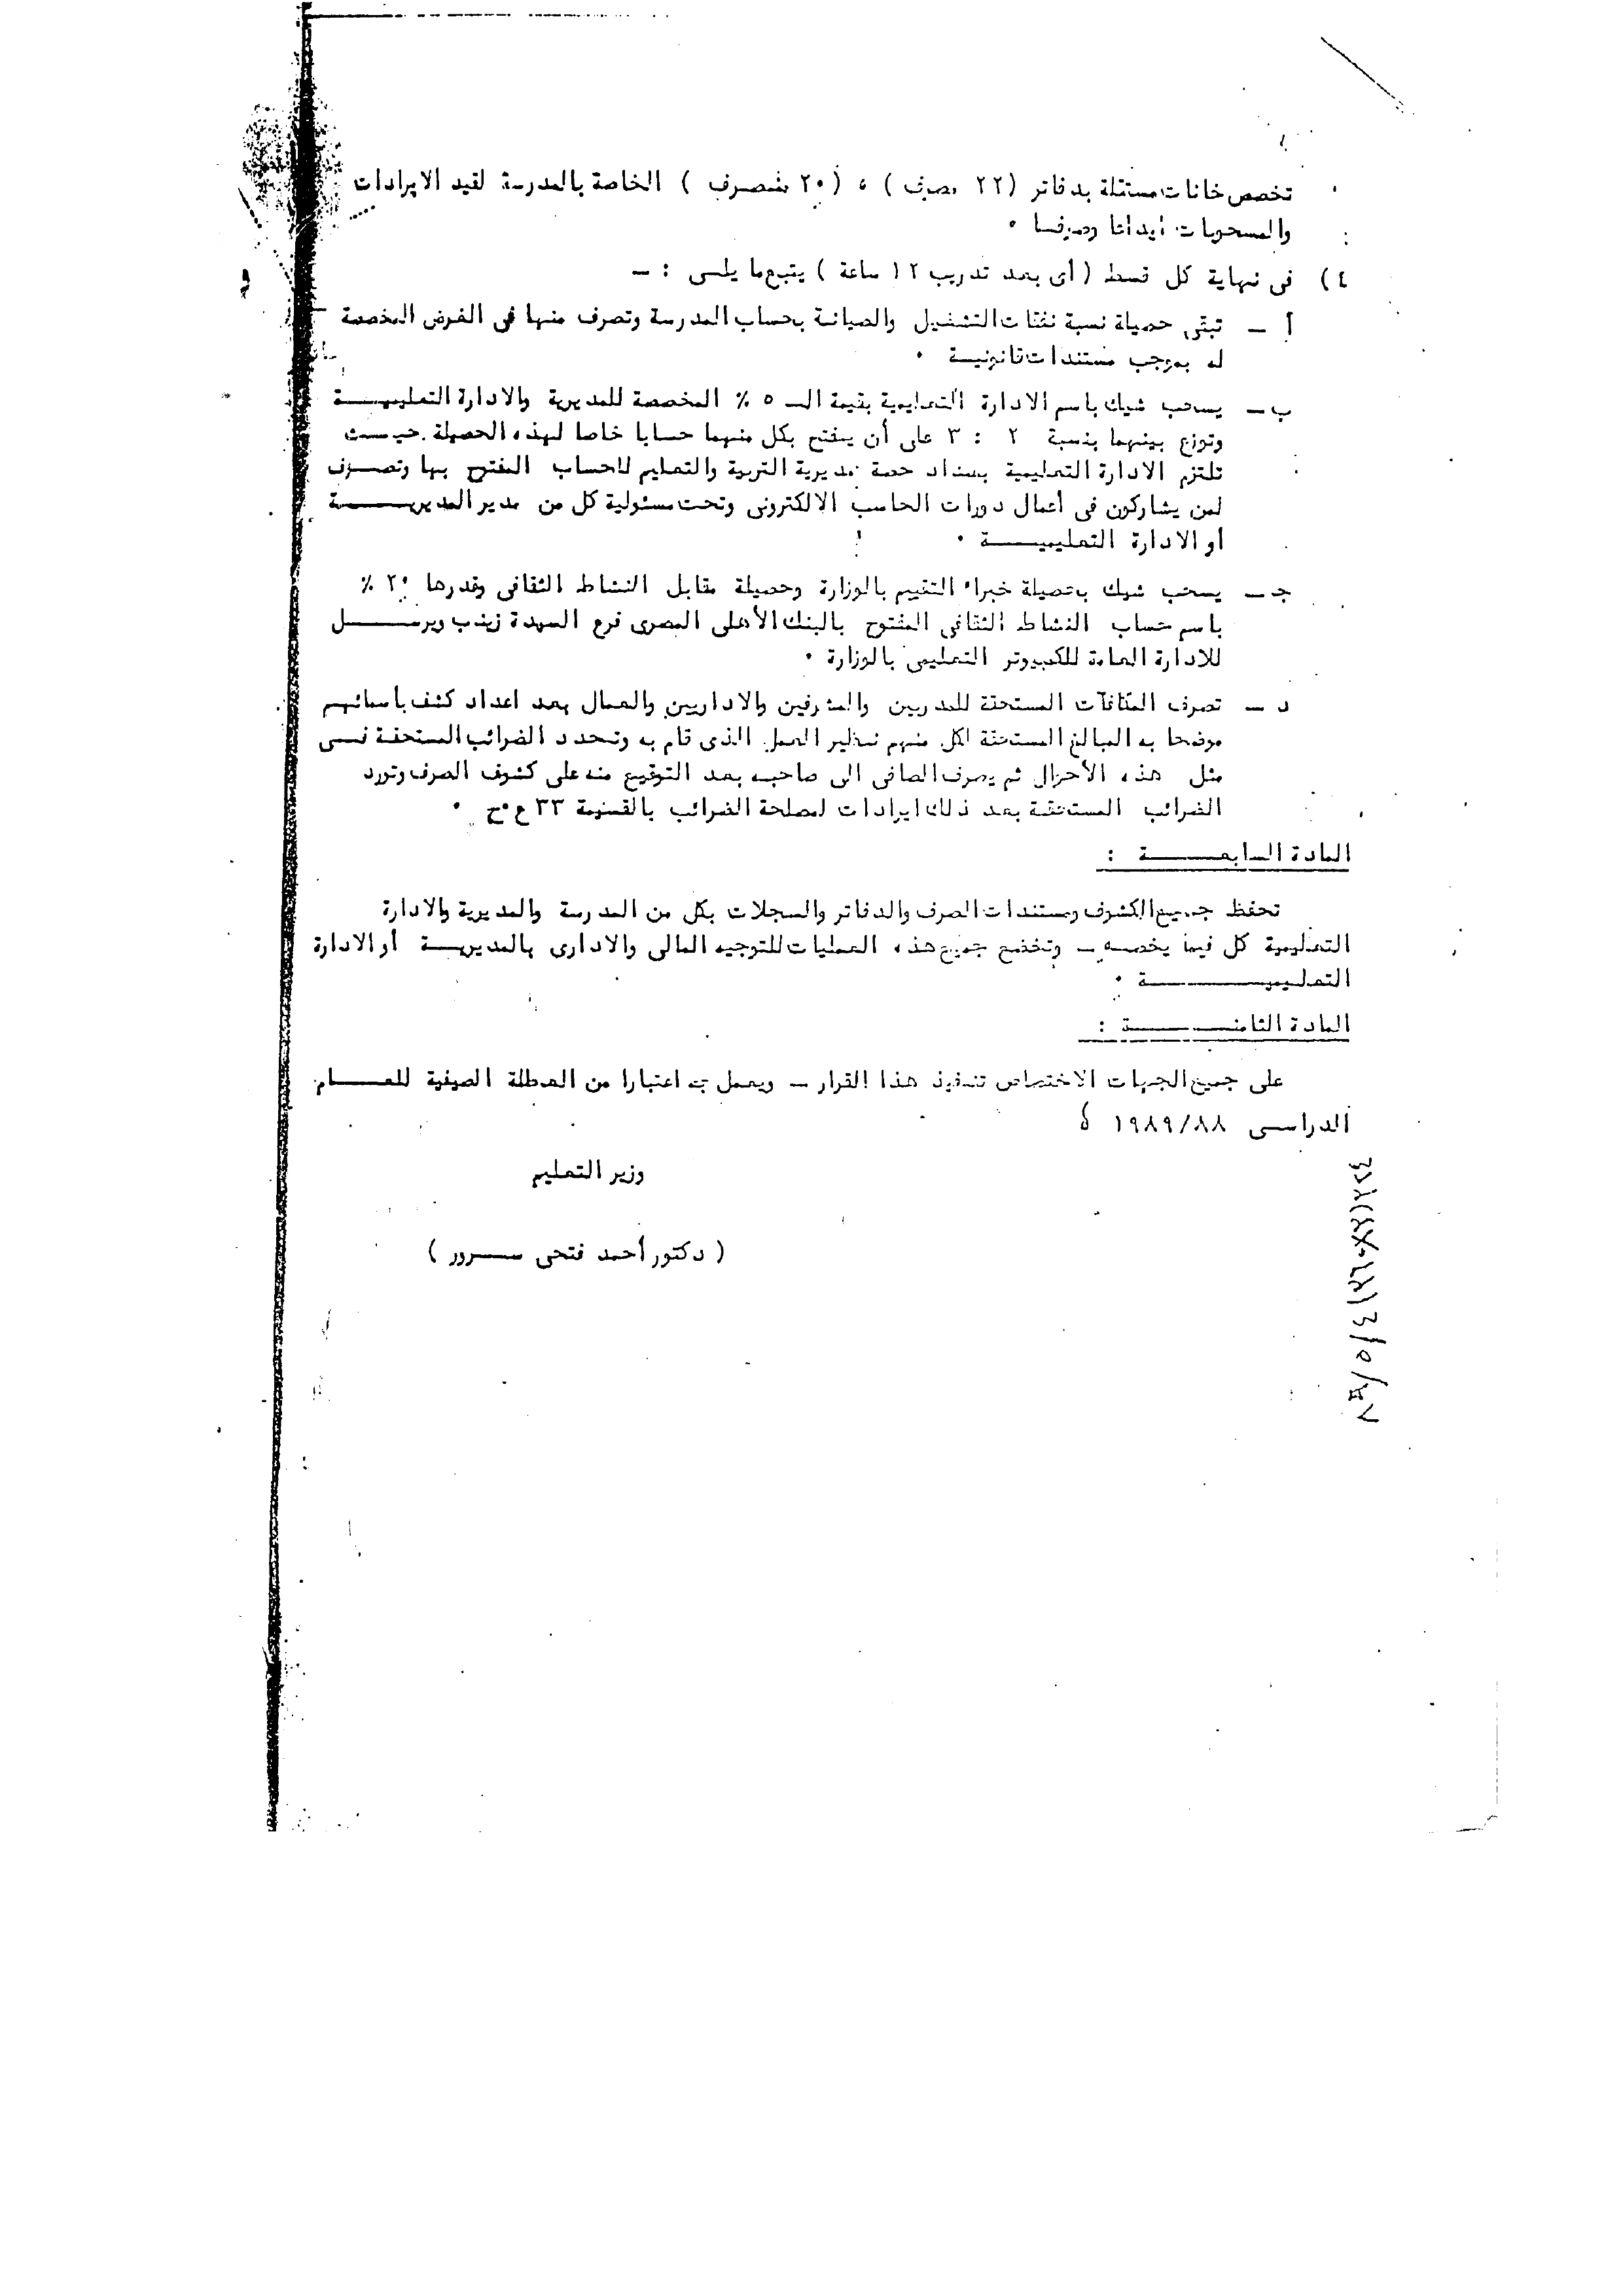 تخصص خانات مستقلة بدفاتر (٢٢ مصرف) ، (٢٠ مصرف) الخاصة بالمدرسة لقيد الايرادات
والمسحوبات ايداعا وصرفا ٠
٤) فى نهاية كل قسط (أى بعد تدريب ١٢ ساعة) يتبع ما يلــى : ــ
أ ــ تبقى حصيلة نسبة نفقات التشغيل والصيانة بحساب المدرسة وتصرف منها فى الغرض المخصصة
له بموجب مستندات قانونيـة ٠
ب ــ يسحب شيك باسم الادارة التعليمية بقيمة الــ ٥ ٪ المخصصة للمديرية والادارة التعليميـــة
وتوزع بينهما بنسبة ٢ : ٣ على أن يفتح بكل منهما حسابا خاصا لهذه الحصيلة حيــث
تلتزم الادارة التعليمية بسداد حصة مديرية التربية والتعليم للحساب المفتوح بها وتصــرف
لمن يشاركون فى أعمال دورات الحاسب الالكترونى وتحت مسئولية كل من مدير المديريـــــة
أو الادارة التعليميـــــة ٠
جـ ــ يسحب شيك بحصيلة خبراء التقييم بالوزارة وحصيلة مقابل النشاط الثقافى وقدرها ٢٠ ٪
باسم حساب النشاط الثقافى المفتوح بالبنك الأهلى المصرى فرع السيدة زينب ويرســــل
للادارة العامة للكمبيوتر التعليمى بالوزارة ٠
د ــ تصرف المكافآت المستحقة للمدربين والمشرفين والاداريين والعمال بعد اعداد كشف بأسمائهم
موضحا به المبالغ المستحقة لكل منهم نظير العمل الذى قام به وتحدد الضرائب المستحقة فــى
مثل هذه الأحوال ثم يصرف الصافى الى صاحبه بعد التوقيع منه على كشوف الصرف وتورد
الضرائب المستحقة بعد ذلك ايرادات لمصلحة الضرائب بالقسيمة ٣٣ ع٠ح ٠
المادة السابعــــــة :
تحفظ جميع الكشوف ومستندات الصرف والدفاتر والسجلات بكل من المدرسة والمديرية والادارة
التعليمية كل فيما يخصــه ــ وتخضع جميع هذه العمليات للتوجيه المالى والادارى بالمديريــة أو الادارة
التعليميــــــــة ٠
المادة الثامنــــــــة :
على جميع الجهات الاختصاص تنفيذ هذا القرار ــ ويعمل به اعتبارا من العطلة الصيفية للعــــام
الدراســى ١٩٨٩/٨٨
وزير التعليم
(دكتور أحمد فتحى ســـرور)